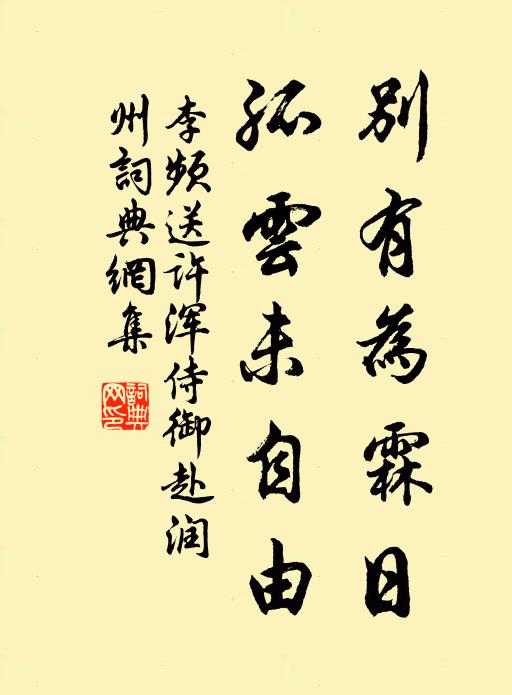 別有為霖日
孤雲未自由
李频送许浑侍御赴润
州詞典網集
詞典
网印